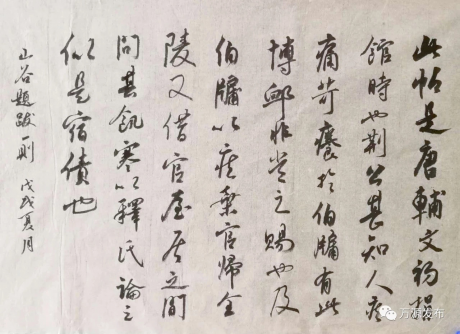 此帖是唐輔文初捐
館時也荊公甚知人疾
痛苛癢於伯牖有此
博卹非常之賜也及
伯牖以疾棄官歸金
陵又借官屋居之間
問其飢寒以釋氏論之
似是宿債也
山谷題跋一則 戊戌夏月
万源发布